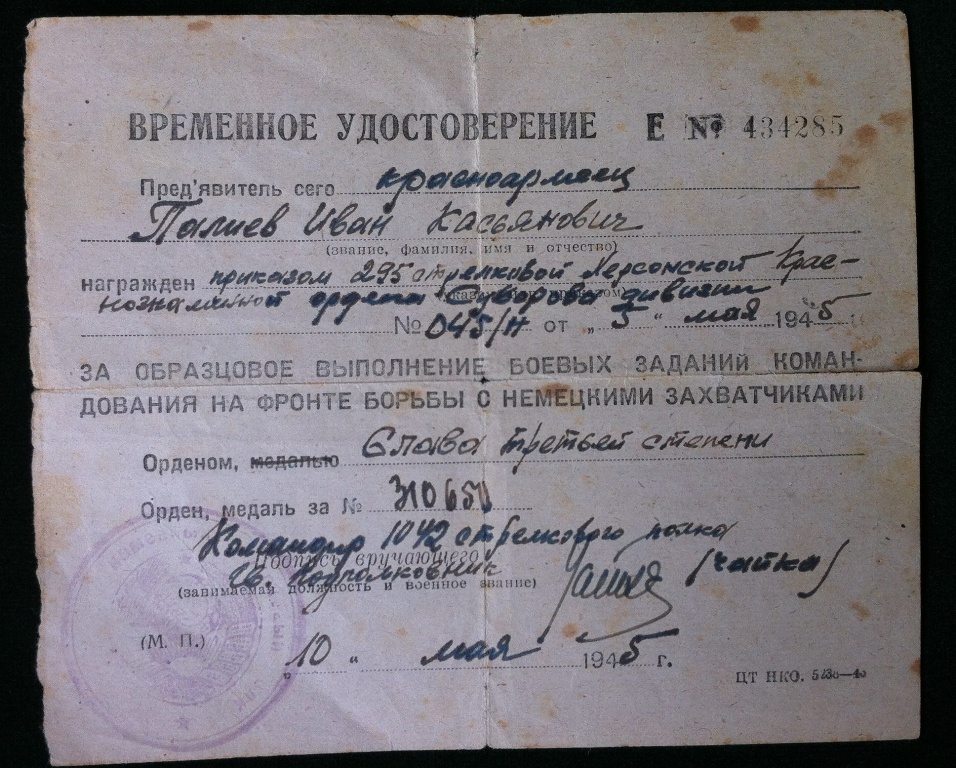 ВРЕМЕННОЕ УДОСТОВЕРЕНИЕ Е № 434285
Пред'явитель сего красноармеец
Палиев Иван Касьянович
(звание, фамилия, имя и отчество)
награжден приказом 295 стрелковой Херсонской Крас-
нознаменной ордена Суворова дивизии
№ 045/н от „ 5 “ мая 1945
ЗА ОБРАЗЦОВОЕ ВЫПОЛНЕНИЕ БОЕВЫХ ЗАДАНИЙ КОМАН-
ДОВАНИЯ НА ФРОНТЕ БОРЬБЫ С НЕМЕЦКИМИ ЗАХВАТЧИКАМИ
Орденом, медалью Слава третьей степени
Орден, медаль за № 310650
Командир 1042 стрелкового полка
Подпись вручающего
гв. подполковник (Чайка)
(занимаемая должность и военное звание)
(М. П.)
„ 10 “ мая 1945 г.
ЦТ НКО.